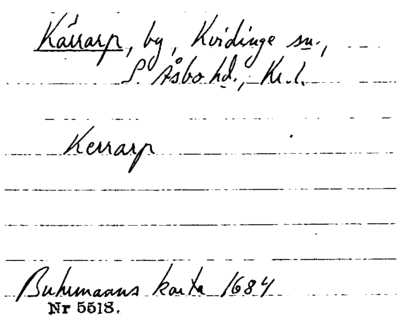 Kärrarp, by, Kvidinge sn.,
S. Åsbo hd., Kr. l.
Kerrarp
Buhrmanns karta 1684
Nr 5518.